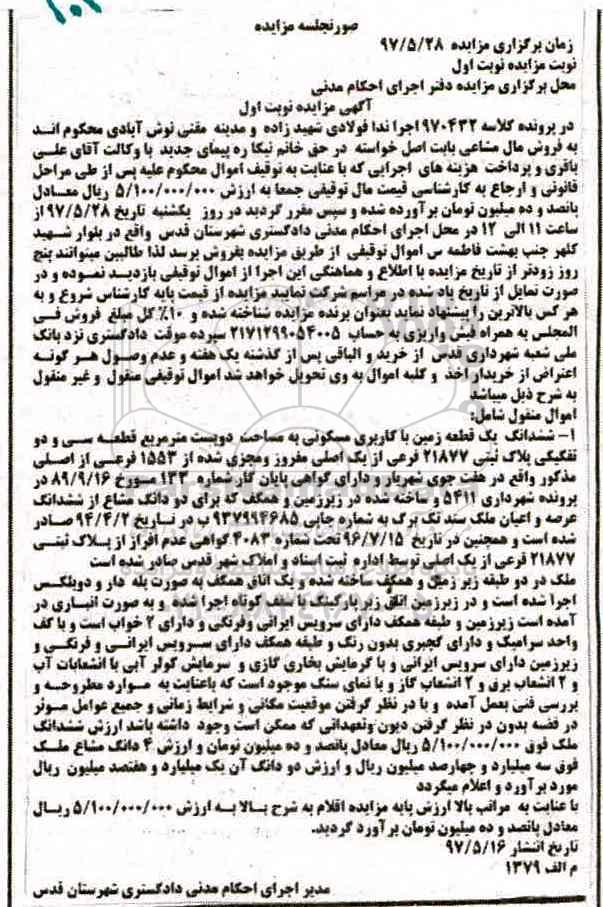 صورتجلسه مزایده
زمان برگزاری مزایده ۹۷/۵/۲۸
نوبت مزایده نوبت اول
محل برگزاری مزایده دفتر اجرای احکام مدنی
آگهی مزایده نوبت اول
در پرونده کلاسه ۹۷۰۴۳۲ اجرا ندا فولادی شهید زاده و مدینه مقنی نوش آبادی محکوم اند
به فروش مال مشاعی بابت اصل خواسته در حق خانم نیکا ره پیمای جدید با وکالت آقای علی
باقری و پرداخت هزینه های اجرایی که با عنایت به توقیف اموال محکوم علیه پس از طی مراحل
قانونی و ارجاع به کارشناسی قیمت مال توقیفی جمعا به ارزش ۵/۱۰۰/۰۰۰/۰۰۰ ریال معادل
پانصد و ده میلیون تومان برآورده شده و سپس مقرر گردید در روز یکشنبه تاریخ ۹۷/۵/۲۸ از
ساعت ۱۱ الی ۱۲ در محل اجرای احکام مدنی دادگستری شهرستان قدس واقع در بلوار شهید
کلهر جنب بهشت فاطمه س اموال توقیفی از طریق مزایده بفروش برسد لذا طالبین میتوانند پنج
روز زودتر از تاریخ مزایده با اطلاع و هماهنگی این اجرا از اموال توقیفی بازدید نموده و در
صورت تمایل از تاریخ یاد شده در مراسم شرکت نمایند مزایده از قیمت پایه کارشناس شروع و به
هر کس بالاترین را پیشنهاد نماید بعنوان برنده مزایده شناخته شده و ۱۰٪ کل مبلغ فروش فی
المجلس به همراه فیش واریزی به حساب ۲۱۷۱۲۹۹۰۵۴۰۰۵ سپرده موقت دادگستری نزد بانک
ملی شعبه شهرداری قدس از خرید و الباقی پس از گذشته یک هفته و عدم وصول هر گونه
اعتراض از خریدار اخذ و کلیه اموال به وی تحویل خواهد شد اموال توقیفی منقول و غیر منقول
به شرح ذیل میباشد
اموال منقول شامل:
۱- ششدانگ یک قطعه زمین با کاربری مسکونی به مساحت دویست مترمربع قطعه سی و دو
تفکیکی پلاک ثبتی ۲۱۸۷۷ فرعی از یک اصلی مفروز ومجزی شده از ۱۵۵۳ فرعی از اصلی
مذکور واقع در هفت جوی شهریار و دارای گواهی پایان کار شماره ۱۳۳ مورخ ۸۹/۹/۱۶ در
پرونده شهرداری ۵۴۱۱ و ساخته شده در زیرزمین و همکف که برای دو دانگ مشاع از ششدانگ
عرصه و اعیان ملک سند تک برگ به شماره چاپی ۹۳۷۹۹۴۶۸۵ ب در تاریخ ۹۴/۴/۲ صادر
شده است و همچنین در تاریخ ۹۶/۷/۱۵ تحت شماره ۴۰۸۳ گواهی عدم افراز از پلاک ثبتی
۲۱۸۷۷ فرعی از یک اصلی توسط اداره ثبت اسناد و املاک شهر قدس صادر شده است
ملک در دو طبقه زیر زمین و همکف ساخته شده و یک اتاق همکف به صورت پله دار و دوبلکس
اجرا شده است و در زیرزمین اتاق زیر پارکینگ با سقف کوتاه اجرا شده و به صورت انباری در
آمده است زیرزمین و طبقه همکف دارای سرویس ایرانی وفرنگی و دارای ۲ خواب است و با کف
واحد سرامیک و دارای گچبری بدون رنگ و طبقه همکف دارای سرویس ایرانی و فرنگی و
زیرزمین دارای سرویس ایرانی و با گرمایش بخاری گازی و سرمایش کولر آبی با انشعابات آب
و ۲ انشعاب برق و ۲ انشعاب گاز و با نمای سنگ موجود است که باعنایت به موارد مطروحه و
بررسی فنی بعمل آمده و با در نظر گرفتن موقعیت مکانی و شرایط زمانی و جمیع عوامل موثر
در قضیه بدون در نظر گرفتن دیون وتعهداتی که ممکن است وجود داشته باشد ارزش ششدانگ
ملک فوق ۵/۱۰۰/۰۰۰/۰۰۰ ریال معادل پانصد و ده میلیون تومان و ارزش ۴ دانگ مشاع ملک
فوق سه میلیارد و چهارصد میلیون ریال و ارزش دو دانگ آن یک میلیارد و هفتصد میلیون ریال
مورد برآورد و اعلام میگردد
با عنایت به مراتب بالا ارزش پایه مزایده اقلام به شرح بالا به ارزش ۵/۱۰۰/۰۰۰/۰۰۰ ریال
معادل پانصد و ده میلیون تومان برآورد گردید.
تاریخ انتشار ۹۷/۵/۱۶
م الف ۱۳۷۹
مدیر اجرای احکام مدنی دادگستری شهرستان قدس